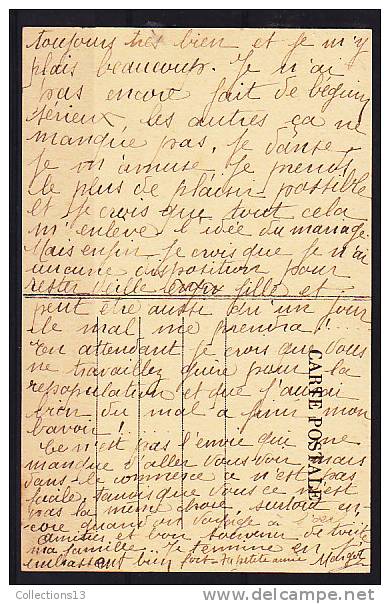 toujours très bien et je m'y
plais beaucoup. Je n'ai
pas encore fait de béguin
sérieux, les autres ça ne
manque pas, je danse
je m'amuse, je prends
le plus de plaisir possible
et je crois que tout cela
m'enlève l'idée du mariage.
Mais enfin je crois que je n'ai
aucune disposition pour
rester vieille fille et
peut être aussi qu'un jour
le mal me prendra !..
En attendant je crois que vous
ne travaillez guère pour la
repopulation et que j'aurai
bien du mal a finir mon
bavoir !
Ce n'est pas l'envie que me
manque d'aller vous voir mais
dans le commerce ce n'est pas
facile, tandis que vous ce n'est
pas la même chose, surtout en-
core quand on voyage à l'œil
amitiés et bon souvenir de toute
ma famille. Je termine en t
embrassant bien fort. Ta petite amie Margot
CARTE POSTALE
©Collections13
delcampe.net